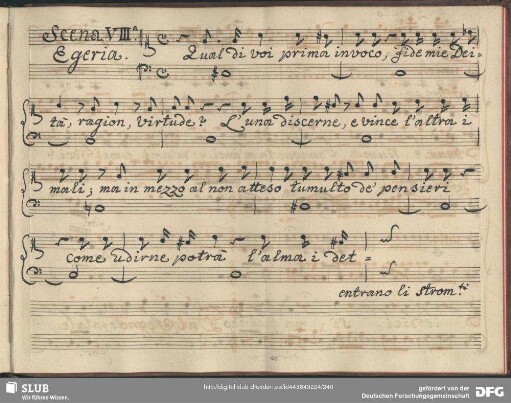 Scena VIII.ª
Egeria.
Qual di voi prima invoco, fide mie Dei=
tà, ragion, virtude? L'una discerne, e vince l'altra i
mali; ma in mezzo al non atteso tumulto de' pensieri
come udirne potrà l'alma i det=
entrano li Strom.ti
SLUB
Wir führen Wissen.
gefördert von der
Deutschen Forschungsgemeinschaft
DFG